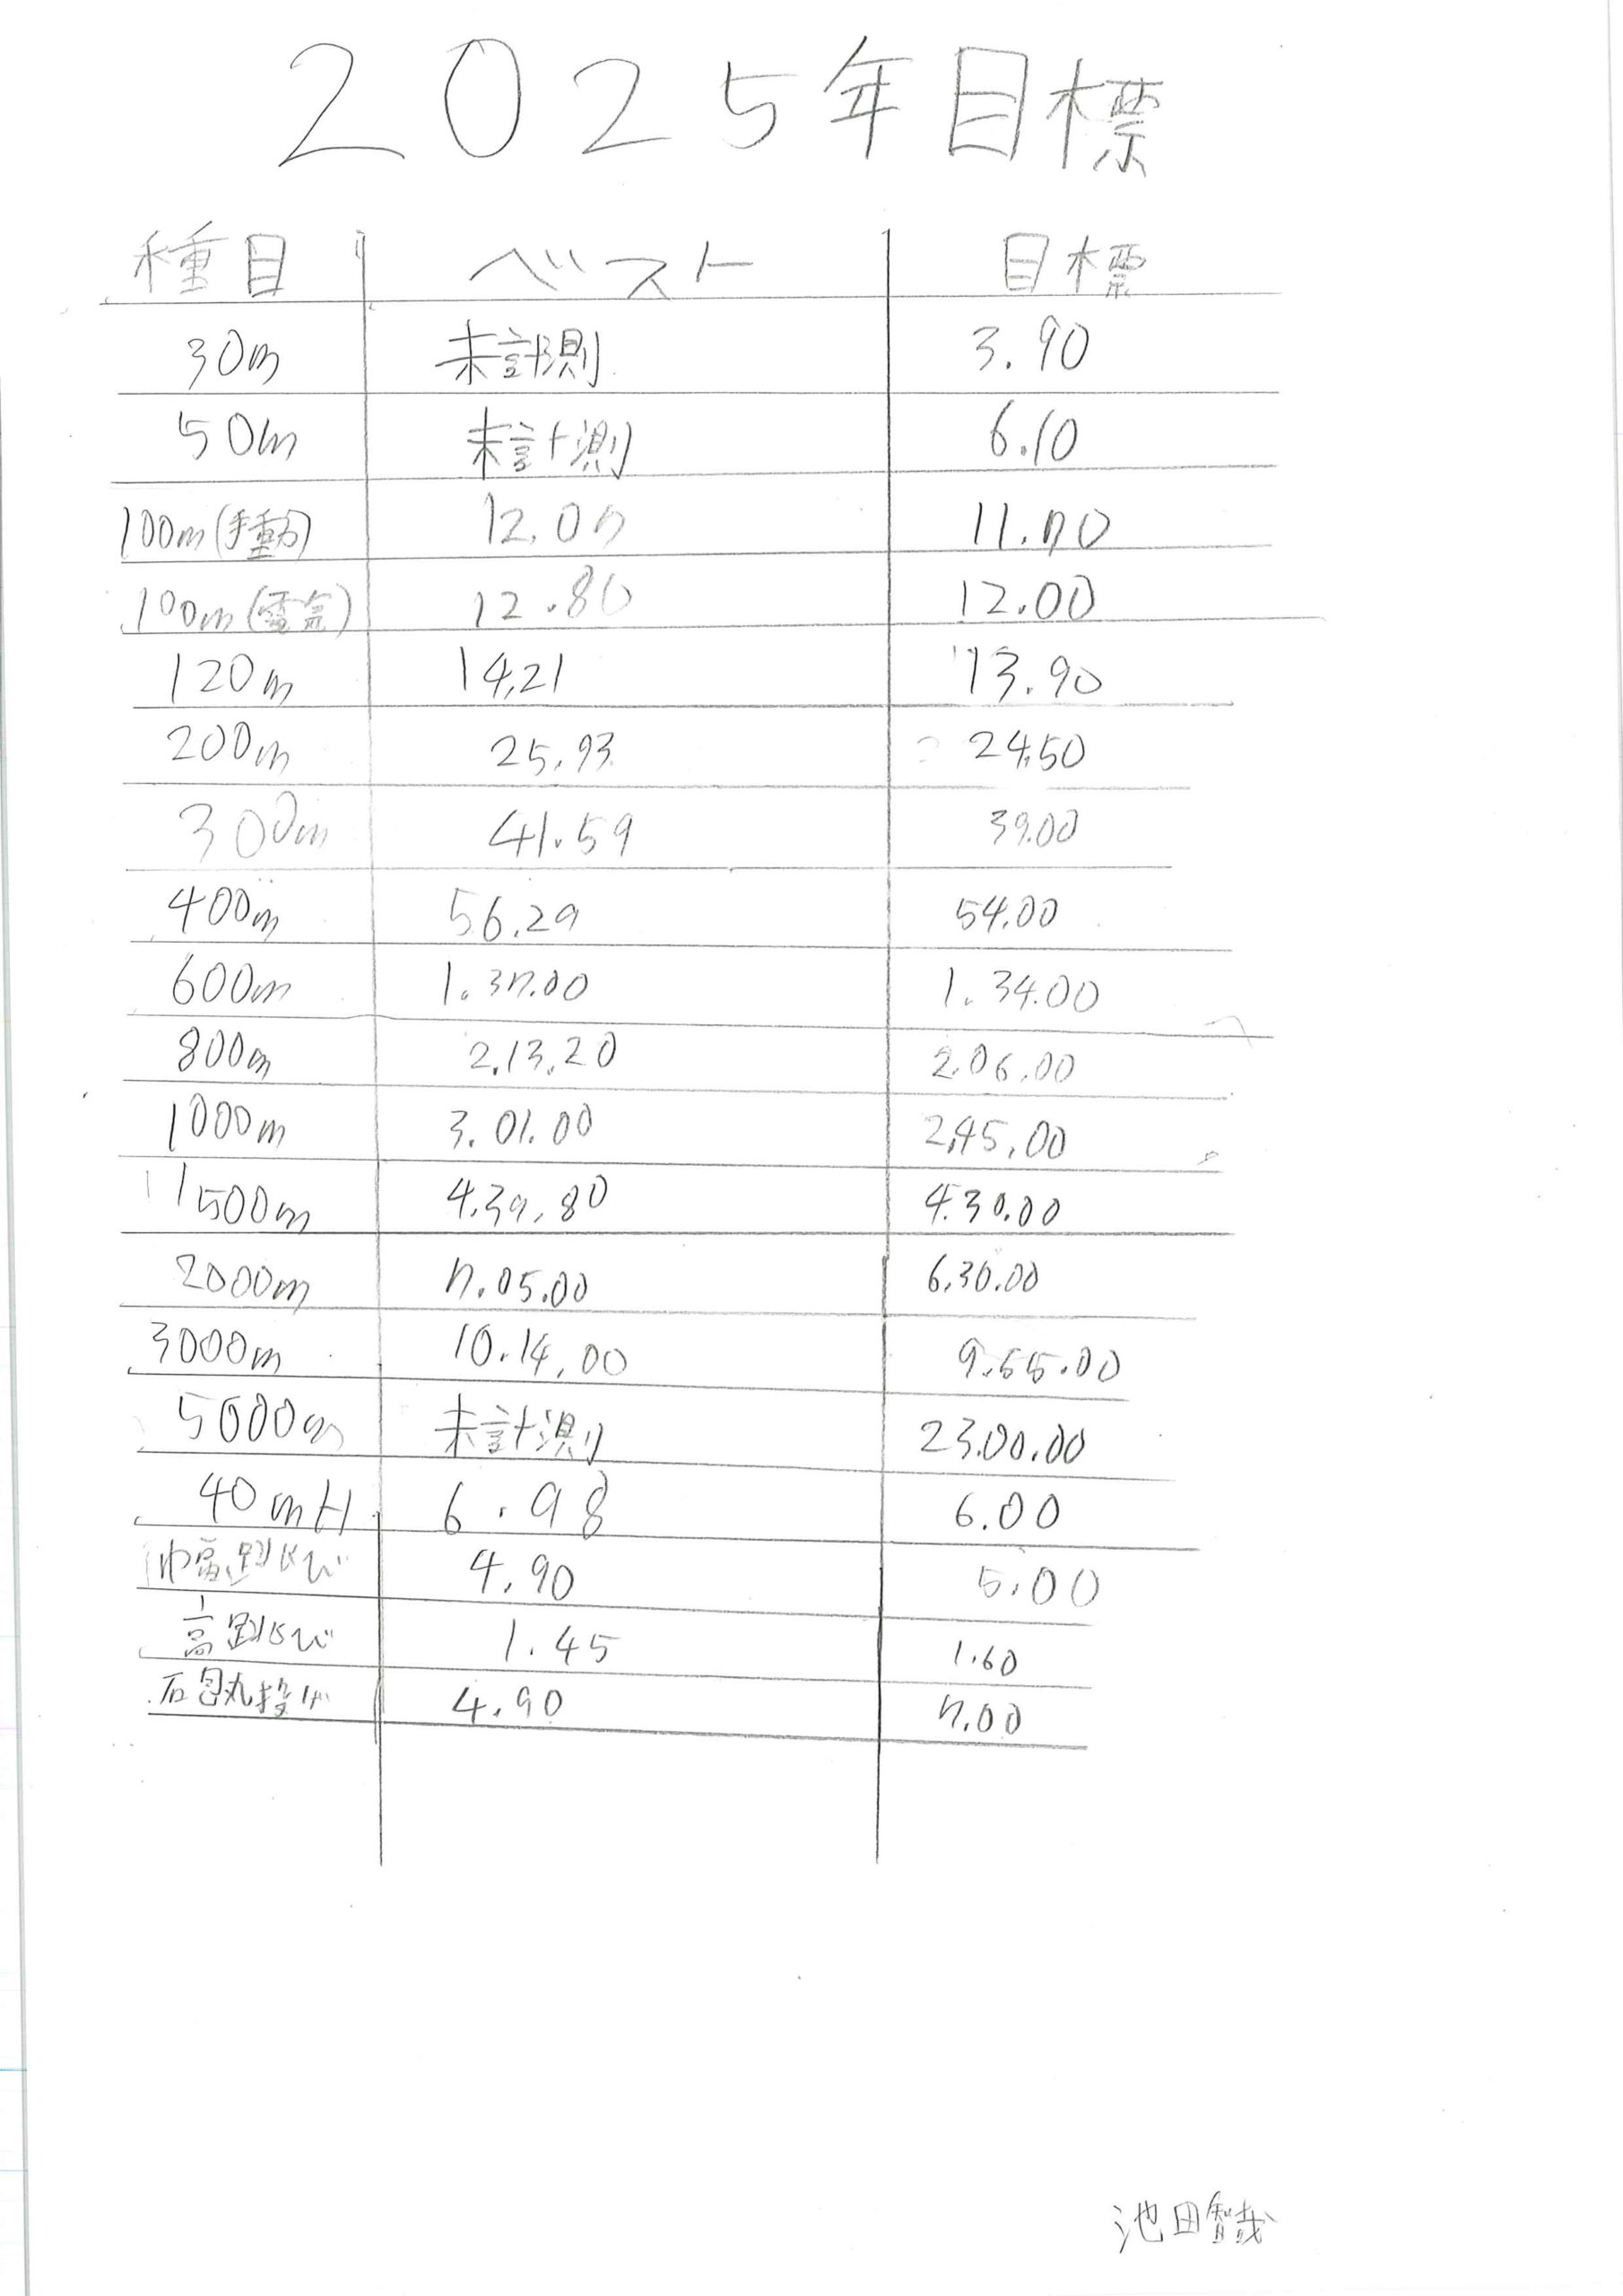 2025年目標
種目 ベスト 目標
30m 未計測 3.90
50m 未計測 6.10
100m(手動) 12.07 11.70
100m(電気) 12.80 12.00
120m 14.21 13.90
200m 25.93 24.50
300m 41.59 39.00
400m 56.29 54.00
600m 1.37.00 1.34.00
800m 2.13.20 2.06.00
1000m 3.01.00 2.45.00
1500m 4.39.80 4.30.00
2000m 7.05.00 6.30.00
3000m 10.14.00 9.55.00
5000m 未計測 23.00.00
40mH 6.98 6.00
巾幅跳び 4.90 5.00
高跳び 1.45 1.60
砲丸投げ 4.90 7.00
池田智哉